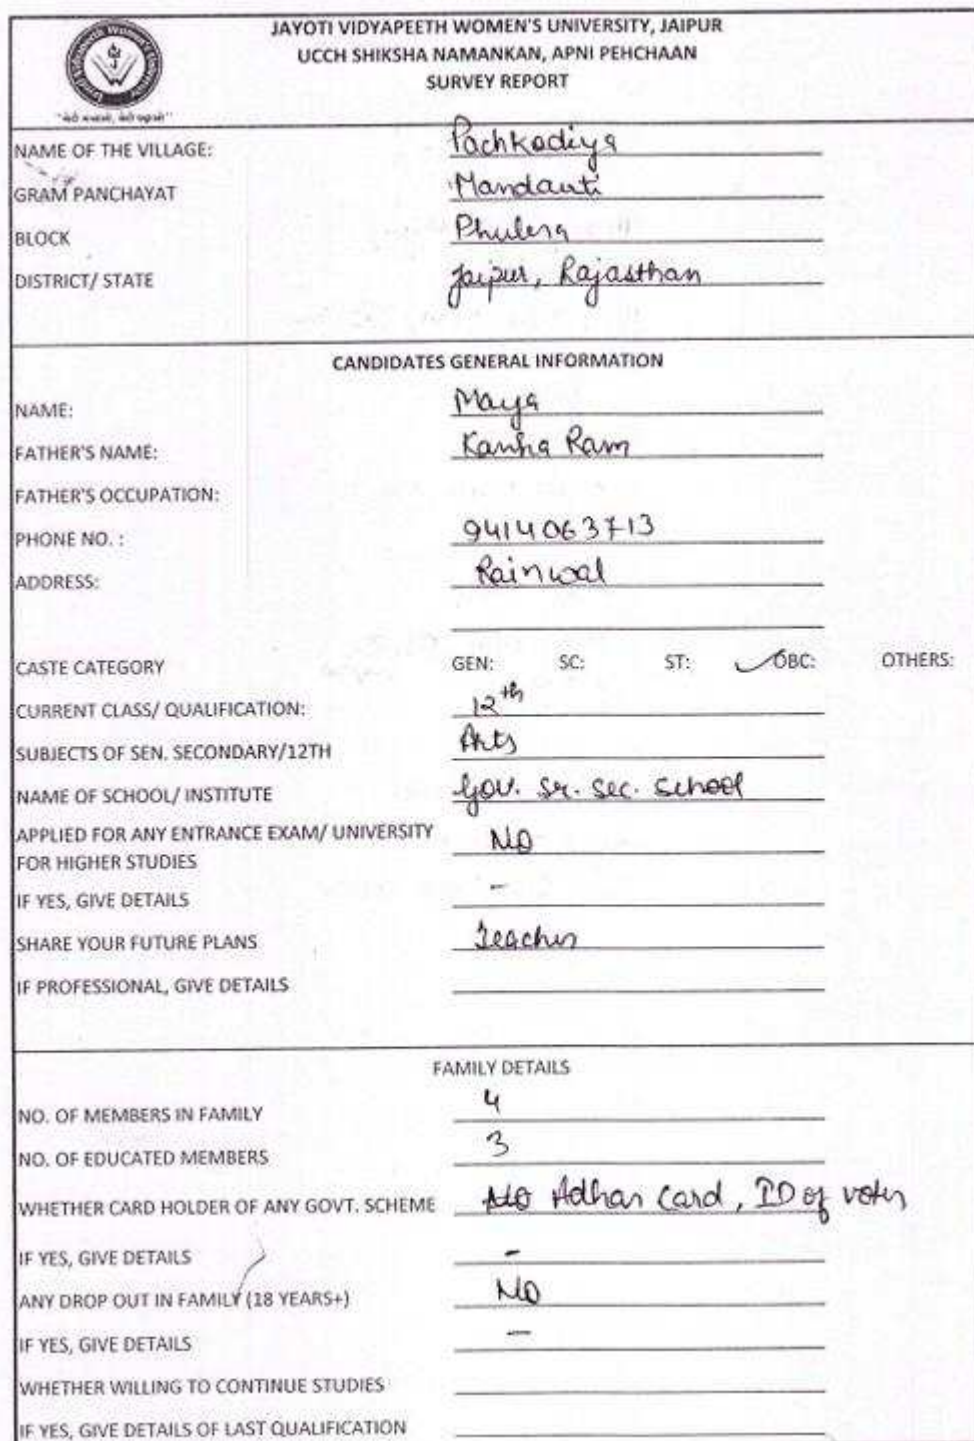 JAYOTI VIDYAPEETH WOMEN'S UNIVERSITY, JAIPUR
UCCH SHIKSHA NAMANKAN, APNI PEHCHAAN
SURVEY REPORT
NAME OF THE VILLAGE: Pachkodiya
GRAM PANCHAYAT Mandauti
BLOCK Phulera
DISTRICT/ STATE Jaipur, Rajasthan
CANDIDATES GENERAL INFORMATION
NAME: Maya
FATHER'S NAME: Kanha Ram
FATHER'S OCCUPATION:
PHONE NO. : 9414063713
ADDRESS: Rainwal
CASTE CATEGORY GEN: SC: ST: ✓OBC: OTHERS:
CURRENT CLASS/ QUALIFICATION: 12th
SUBJECTS OF SEN. SECONDARY/12TH Arts
NAME OF SCHOOL/ INSTITUTE Gov. Sr. Sec. School
APPLIED FOR ANY ENTRANCE EXAM/ UNIVERSITY No
FOR HIGHER STUDIES
IF YES, GIVE DETAILS -
SHARE YOUR FUTURE PLANS Teacher
IF PROFESSIONAL, GIVE DETAILS
FAMILY DETAILS
NO. OF MEMBERS IN FAMILY 4
NO. OF EDUCATED MEMBERS 3
WHETHER CARD HOLDER OF ANY GOVT. SCHEME No Adhar Card, ID of voter
IF YES, GIVE DETAILS -
ANY DROP OUT IN FAMILY (18 YEARS+) No
IF YES, GIVE DETAILS -
WHETHER WILLING TO CONTINUE STUDIES
IF YES, GIVE DETAILS OF LAST QUALIFICATION